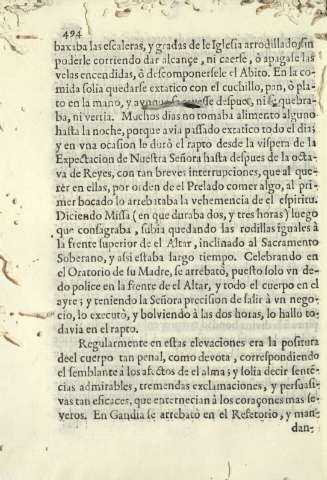 494
baxaba las escaleras, y gradas de le Iglesia arrodillado, sin
poderle corriendo dar alcançe, ni caerse, ò apagase las
velas encendidas, ò descomponersele el Abito. En la co-
mida solia quedarse extatico con el cuchillo, pan, ò pla-
to en la mano, y aunque se despues, ni se quebra-
ba, ni vertia. Muchos dias no tomaba alimento alguno
hasta la noche, porque avia passado extatico todo el dia;
y en vna ocasion le durò el rapto desde la vispera de la
Expectacion de Nuestra Señora hasta despues de la octa-
va de Reyes, con tan breves interrupciones, que al que-
rer en ellas, por orden de el Prelado comer algo, al pri-
mer bocado lo arrebataba la vehemencia de el espiritu.
Diciendo Missa (en que duraba dos, y tres horas) luego
que consagraba, subia quedando las rodillas iguales à
la frente superior de el Altar, inclinado al Sacramento
Soberano, y assi estaba largo tiempo. Celebrando en
el Oratorio de su Madre, se arrebatò, puesto solo vn de-
do police en la frente de el Altar, y todo el cuerpo en el
ayre; y teniendo la Señora precision de salir à vn nego-
cio, lo executò, y bolviendo à las dos horas, lo hallo to-
davia en el rapto.
Regularmente en estas elevaciones era la positura
deel cuerpo tan penal, como devota, correspondiendo
el semblante à los afectos de el alma; y solia decir senten-
cias admirables, tremendas exclamaciones, y persuasi-
vas tan eficaces, que enternecian à los coraçones mas se-
veros. En Gandia se arrebatò en el Refetorio, y man-
dan-